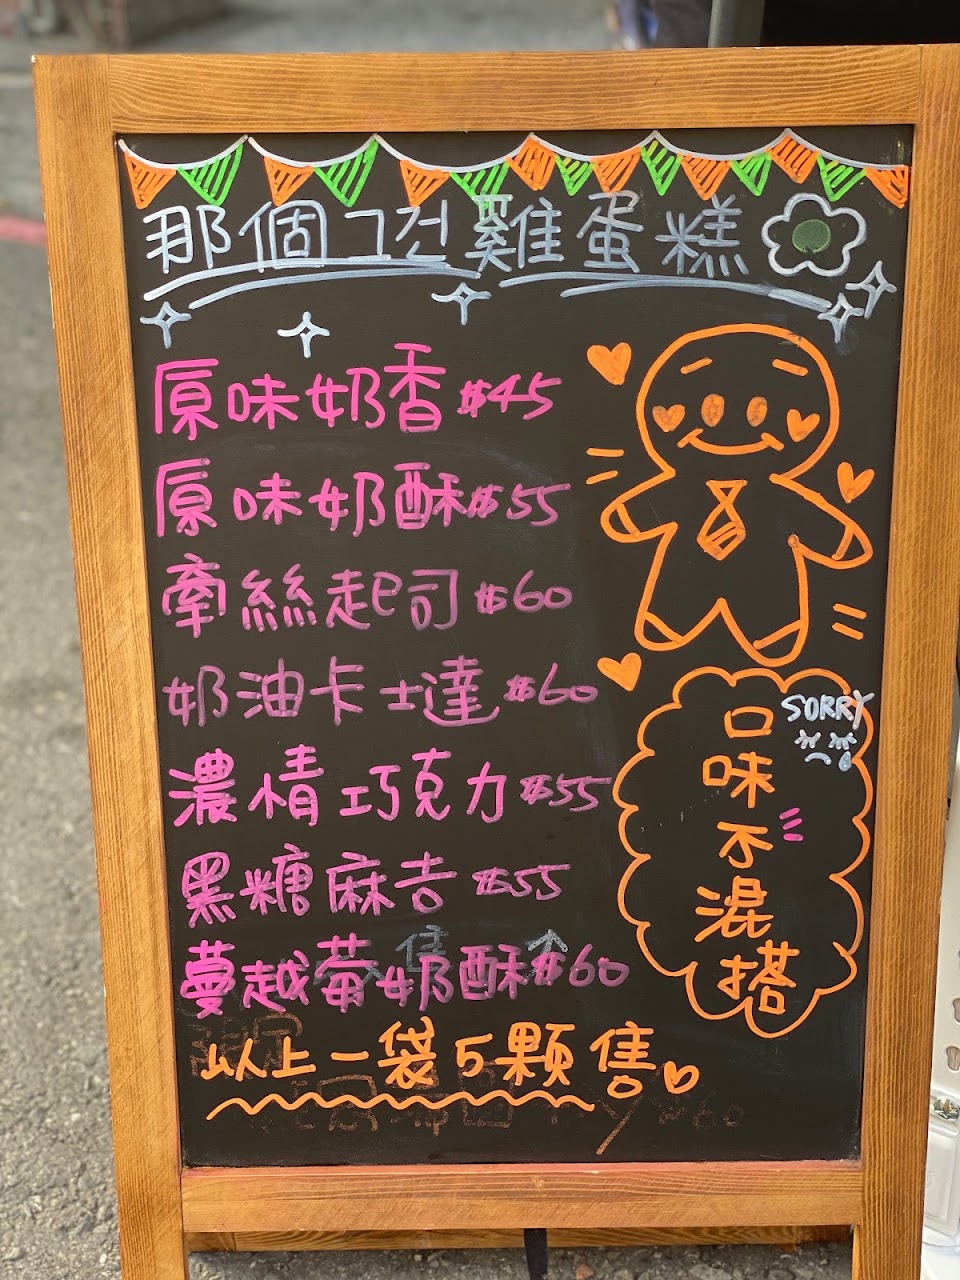 那個그건雞蛋糕
原味奶香$45
原味奶酥$55
牽絲起司$60
奶油卡士達$60
濃情巧克力$55
黑糖麻吉$55
蔓越莓奶酥$60
以上一袋5顆售
SORRY
口味不混搭